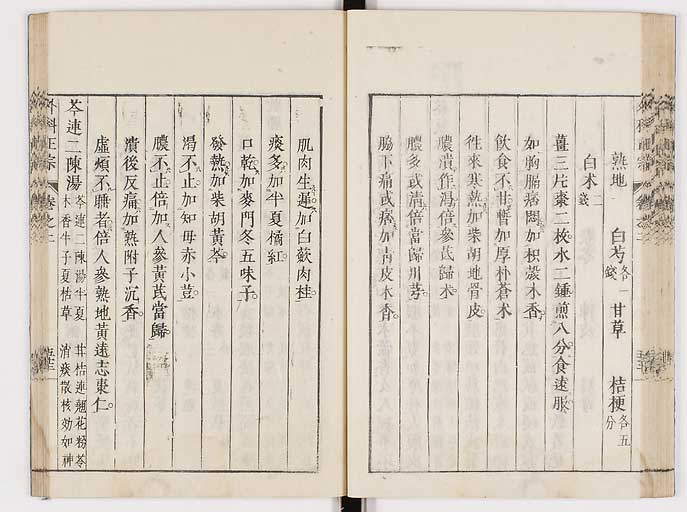 熟地　白芍各一錢　甘草　桔梗各五分
白术二錢
薑三片棗二枚水二鍾煎八分食遠服
如胸膈痞悶加枳殼木香
飲食不甘暫加厚朴蒼术
徃來寒熱加柴胡地骨皮
膿潰作渴倍參芪歸术
膿多或清倍當歸川芎
脇下痛或痛加青皮木香
肌肉生遲加白蘞肉桂
痰多加半夏橘紅
口乾加麥門冬五味子
發熱加柴胡黃芩
渴不止加知母赤小荳
膿不止倍加人參黃芪當歸
潰後反痛加熟附子沉香
虛煩不睡者倍人參熟地黃遠志棗仁
芩連二陳湯
芩連二陳湯半夏　甘桔連翹花粉苓
木香牛子夏枯草　消痰散核効如神
外科正宗　卷之二